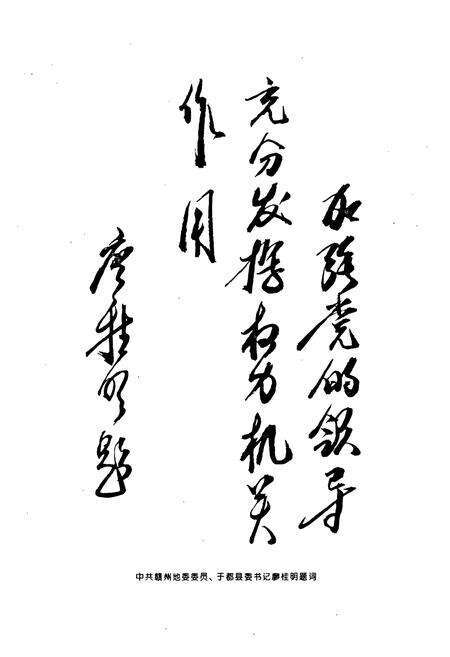 加强党的领导
充分发挥权力机关
作用
廖桂明题
中共赣州地委委员、于都县委书记廖桂明题词